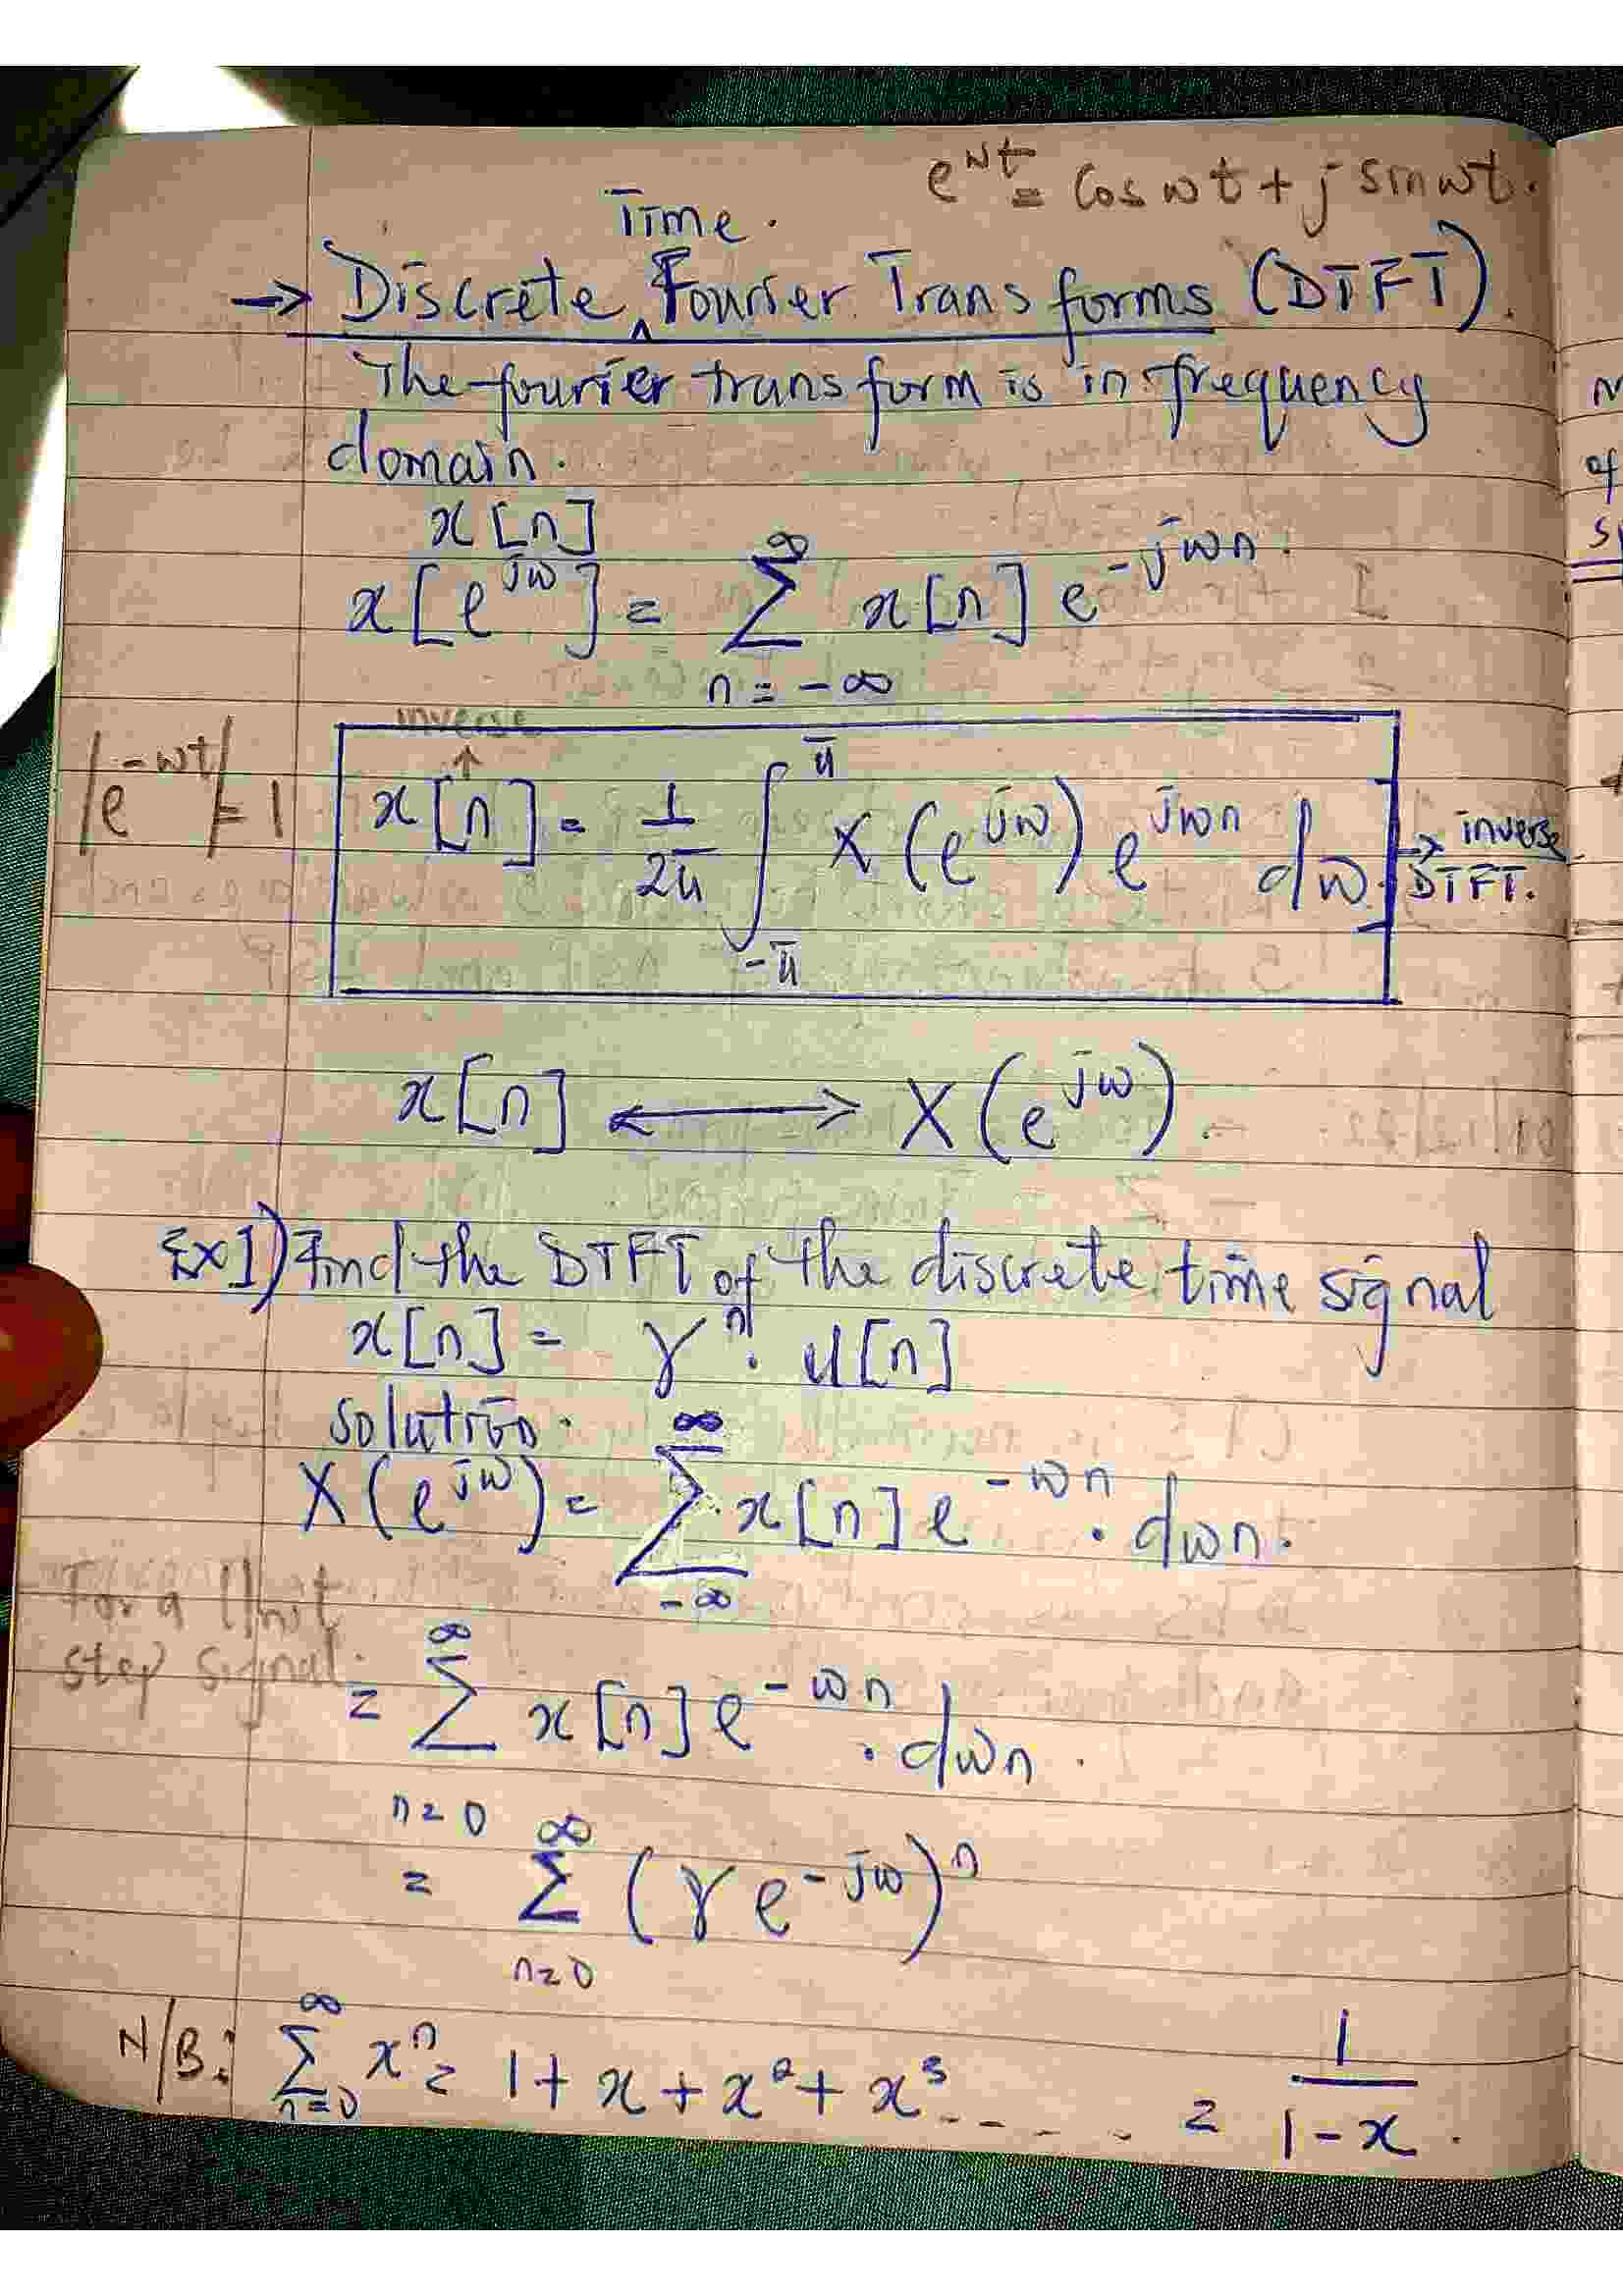 e^wt = Cos wt + j sin wt.
Time.
→ Discrete ^ Fourier Transforms (DTFT).
The fourier transform is in frequency
domain.
x[n]
x[e^jw] = ∞ Σ n=-∞ x[n] e^-jwn.
inverse
↑
|e^-wt| = 1
x[n] = 1/2π ∫ π -π X(e^jw) e^jwn dw. → inverse DTFT.
x[n] ⟷ X(e^jw).
Ex1) Find the DTFT of the discrete time signal
x[n] = γ^n . u[n]
solution.
X(e^jw) = ∞ Σ -∞ x[n] e^-wn . dwn.
For a Unit
step signal.
= ∞ Σ n=0 x[n] e^-wn . dwn.
= ∞ Σ n=0 (γ e^-jw)^n
N/B: ∞ Σ n=0 x^n = 1 + x + x^2 + x^3 - - - - . = 1/1-x .